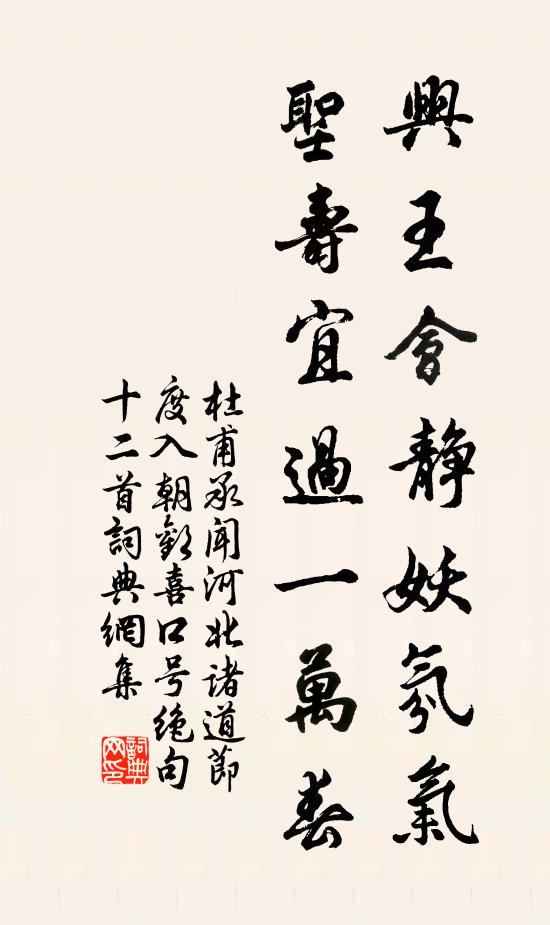 興王會静妖氛氣
聖壽宜過一萬春
杜甫承聞河北诸道節
度入朝歡喜口号绝句
十二首詞典網集
詞典网印